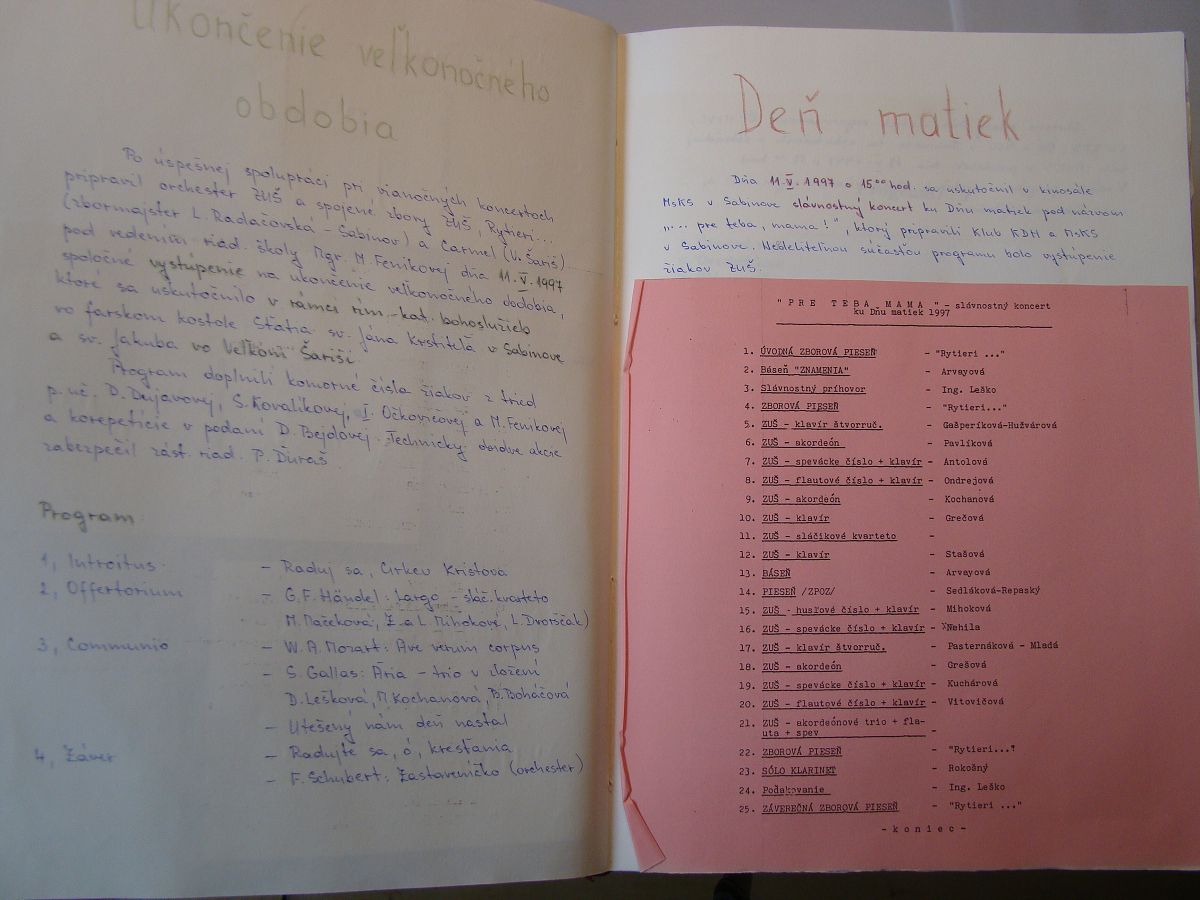 Ukončenie veľkonočného
obdobia
Po úspešnej spolupráci pri vianočných koncertoch
pripravil orchester ZUŠ a spojené zbory ZUŠ, Rytieri...
(zbormajster L. Radačovská - Sabinov) a Carmel (V. Šariš)
pod vedením riad. školy Mgr. M. Feníkovej dňa 11.V.1997
spoločné vystúpenie na ukončenie veľkonočného obdobia,
ktoré sa uskutočnilo v rámci rím.-kat. bohoslužieb
vo farskom kostole Sťatia sv. Jána Krstiteľa v Sabinove
a sv. Jakuba vo Veľkom Šariši.
Program doplnili komorné čísla žiakov z tried
p. uč. D. S. Kovalíkovej, I. Očkovičovej a M. Feníkovej
a korepetície v podaní D. Bejdovej. Technicky obidve akcie
zabezpečil zást. riad. P. Ďuraš.
Program
1, Introitus - Raduj sa, Cirkev Kristova
2, Offertorium - G.F. Händel: Largo - sláč. kvarteto
M. Mačeková, Z. a L. Mihokové, L. Dvorščák)
3, Communio - W. A. Mozart: Ave verum corpus
- S. Gallas: Ária - trio v zložení
D. Lešková, M. Kochanová, B. Boháčová
- Utešený nám deň nastal
4, Záver - Radujte sa, ó, kresťania
- F. Schubert: Zastaveníčko (orchester)
Deň matiek
Dňa 11.V.1997 o 15⁰⁰ hod. sa uskutočnil v kinosále
MsKS v Sabinove slávnostný koncert ku Dňu matiek pod názvom
"... pre teba, mama!", ktorý pripravili Klub KDH a MsKS
v Sabinove. Nedeliteľnou súčasťou programu bolo vystúpenie
žiakov ZUŠ.
"PRE TEBA MAMA" - slávnostný koncert
ku Dňu matiek 1997
1. ÚVODNÁ ZBOROVÁ PIESEŇ - "Rytieri ..."
2. Báseň "ZNAMENIA" - Arvayová
3. Slávnostný príhovor - Ing. Leško
4. ZBOROVÁ PIESEŇ - "Rytieri..."
5. ZUŠ - klavír štvorruč. - Gašperíková-Hužvárová
6. ZUŠ - akordeón - Pavlíková
7. ZUŠ - spevácke číslo + klavír - Antolová
8. ZUŠ - flautové číslo + klavír - Ondrejová
9. ZUŠ - akordeón - Kochanová
10. ZUŠ - klavír - Grečová
11. ZUŠ - sláčikové kvarteto -
12. ZUŠ - klavír - Stašová
13. BÁSEŇ - Arvayová
14. PIESEŇ /ZPOZ/ - Sedláková-Repaský
15. ZUŠ - husľové číslo + klavír - Mihoková
16. ZUŠ - spevácke číslo + klavír - Nehila
17. ZUŠ - klavír štvorruč. - Pasternáková - Mladá
18. ZUŠ - akordeón - Grešová
19. ZUŠ - spevácke číslo + klavír - Kuchárová
20. ZUŠ - flautové číslo + klavír - Vitovičová
21. ZUŠ - akordeónové trio + fla-
uta + spev -
22. ZBOROVÁ PIESEŇ - "Rytieri..."
23. SÓLO KLARINET - Rokošný
24. Poďakovanie - Ing. Leško
25. ZÁVEREČNÁ ZBOROVÁ PIESEŇ - "Rytieri ..."
- k o n i e c -